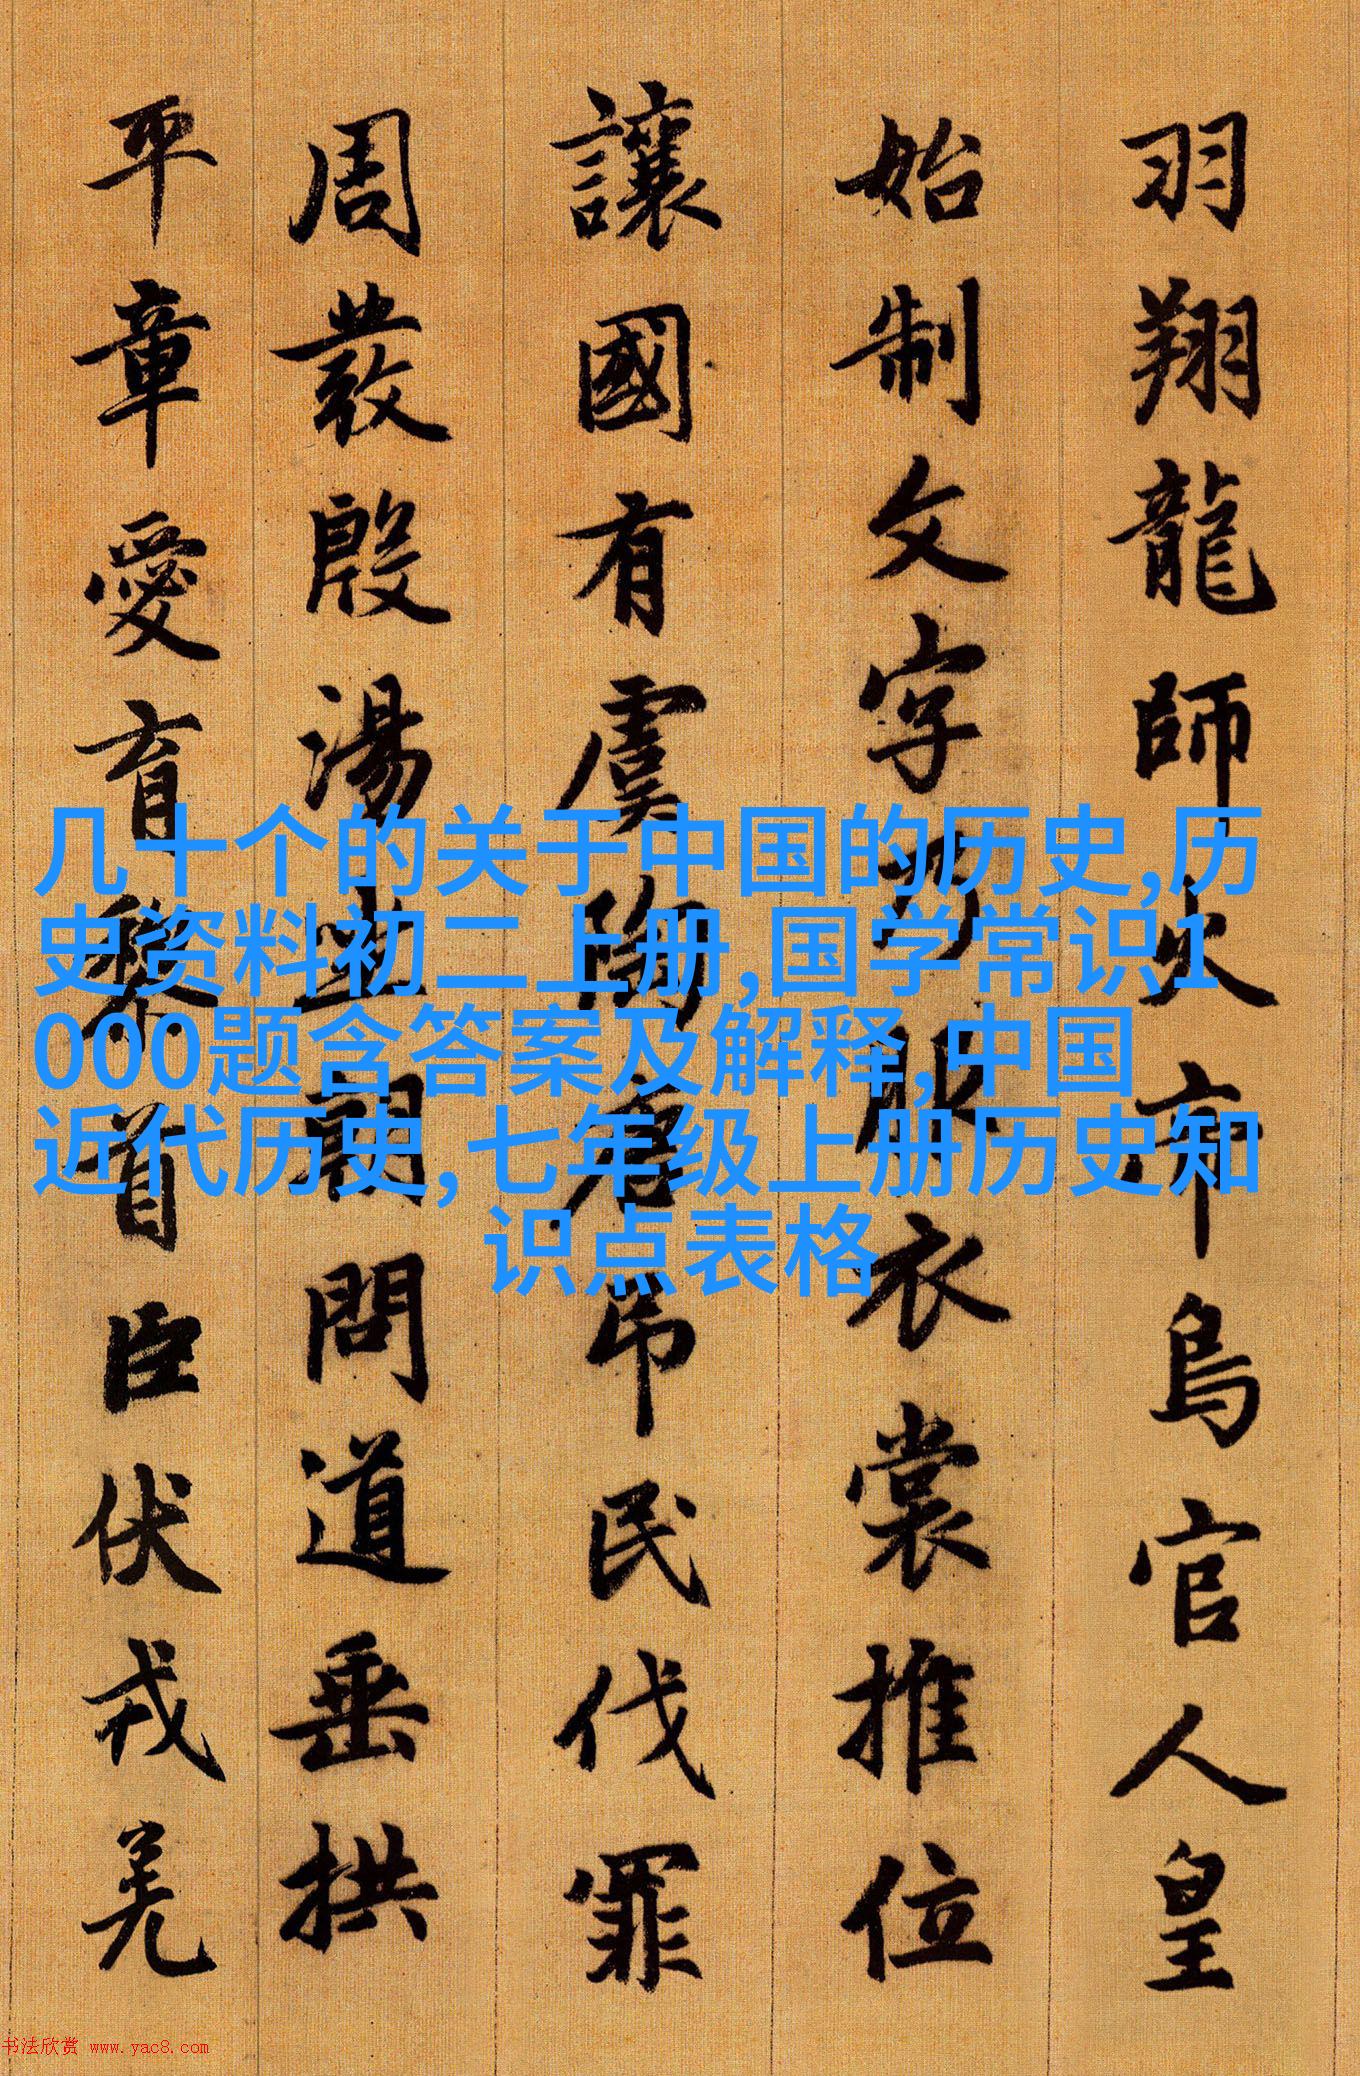 羽翔龍師火帝鳥官人皇
始制文字乃服衣裳推位
讓國有虞陶唐吊民伐罪
周發殷湯坐朝問道垂拱
平章愛育黎首臣伏戎羌
几十个的关于中国的历史,历
史资料初二上册,国学常识1
000题含答案及解释,中国
近代历史,七年级上册历史知
识点表格
书法欣赏 www.yac8.com